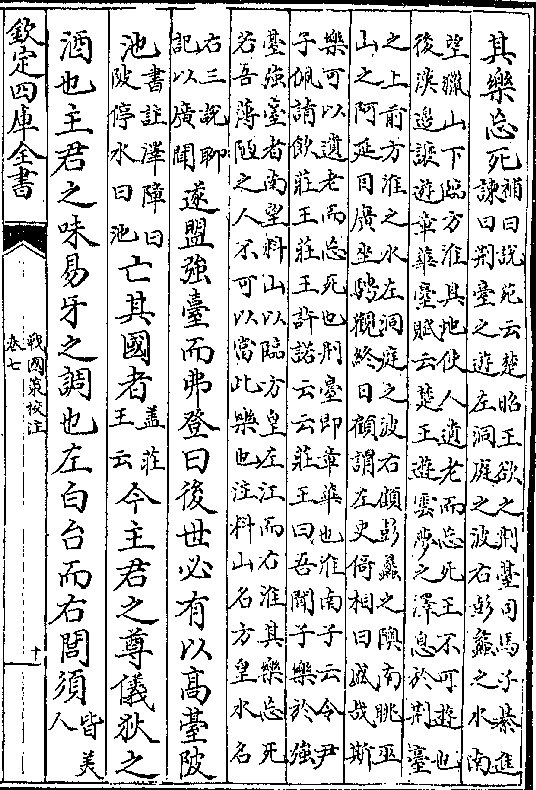 其樂忘死補曰說苑云楚昭王欲之荆臺司馬子綦進
諫曰荆臺之遊左洞庭之波右彭蠡之水南
望獵山下臨方淮其地使人遺老而忘死王不可遊也
後漢邊讓遊章華臺賦云楚王遊雲夢之澤息於荆臺
之上前方淮之水左洞庭之波右顧彭蠡之隩南眺巫
山之阿延目廣坐騁觀終日顧謂左史倚相曰盛哉斯
樂可以遺老而忘死也荆臺即章華也淮南子云令尹
子佩請飲莊王莊王許諾云云莊王曰吾聞子樂於強
臺強臺者南望料山以臨方皇左江而右淮其樂忘死
若吾薄陋之人不可以當此樂也注料山名方皇水名
右三說聊
記以廣聞遂盟強臺而弗登曰後世必有以高臺陂
池書註澤障曰
陂停水曰池亡其國者蓋莊
王云今主君之尊儀狄之
酒也主君之味易牙之調也左白台而右閭須皆美
人
欽定四庫全書
戰國策校注
卷七
十